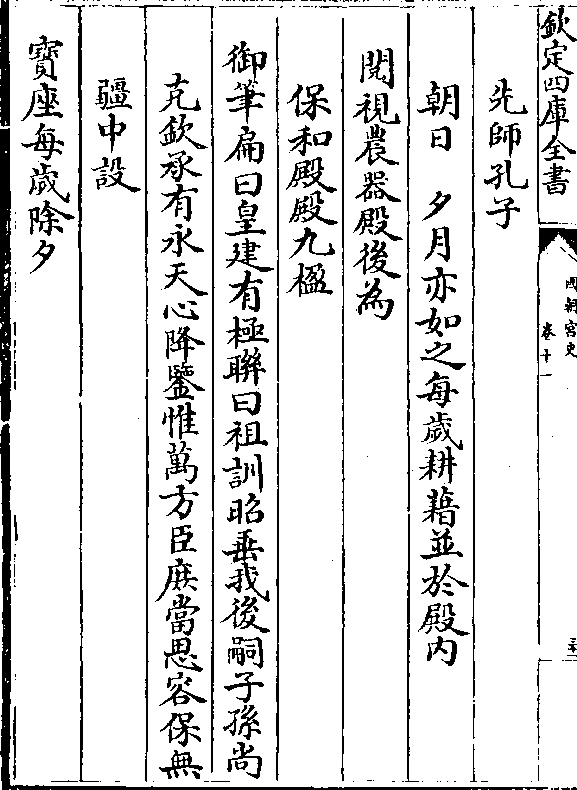 欽定四庫全書
國朝宮史
卷十一
先師孔子
朝日　夕月亦如之每歲耕耤並於殿内
閱視農器殿後為
保和殿殿九楹
御筆扁曰皇建有極聯曰祖訓昭垂我後嗣子孫尚
克欽承有永天心降鑒惟萬方臣庶當思容保無
疆中設
寶座每歲除夕